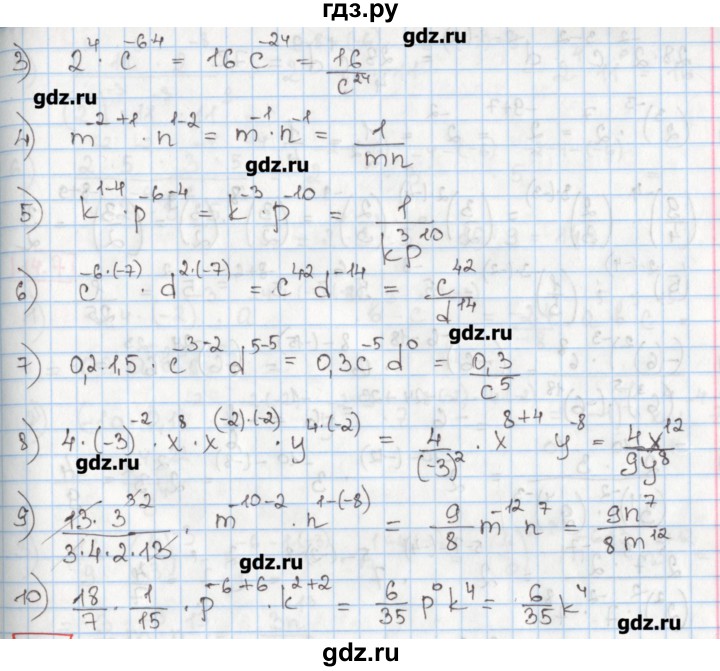 гдз.ру
3) 2^4 · c^(-6·4) = 16 c^(-24) = 16/c^24
gdz.ru
gdz.ru
4) m^(-2+1) · n^(1-2) = m^(-1) · n^(-1) = 1/(mn)
gdz.ru
5) k^(1-4) · p^(-6-4) = k^(-3) · p^(-10) = 1/(k^3 p^10)
6) c^(-6·(-7)) · d^(2·(-7)) = c^42 d^(-14) = c^42/d^14
gdz.ru
7) 0,2·1,5 · c^(-3-2) d^(5-5) = 0,3c^(-5) d^0 = 0,3/c^5
8) 4·(-3)^(-2) · x^8 · x^((-2)·(-2)) · y^(4·(-2)) = 4/(-3)^2 · x^(8+4) y^(-8) = 4x^12/9y^8
9) 13·3^(3 2)/(3·4·2·13) · m^(-10-2) · n^(1-(-8)) = 9/8 m^(-12) n^7 = 9n^7/8m^12
gdz.ru
10) 18/7 · 1/15 · p^(-6+6) · k^(2+2) = 6/35 p^0 k^4 = 6/35 k^4
gdz.ru
gdz.ru